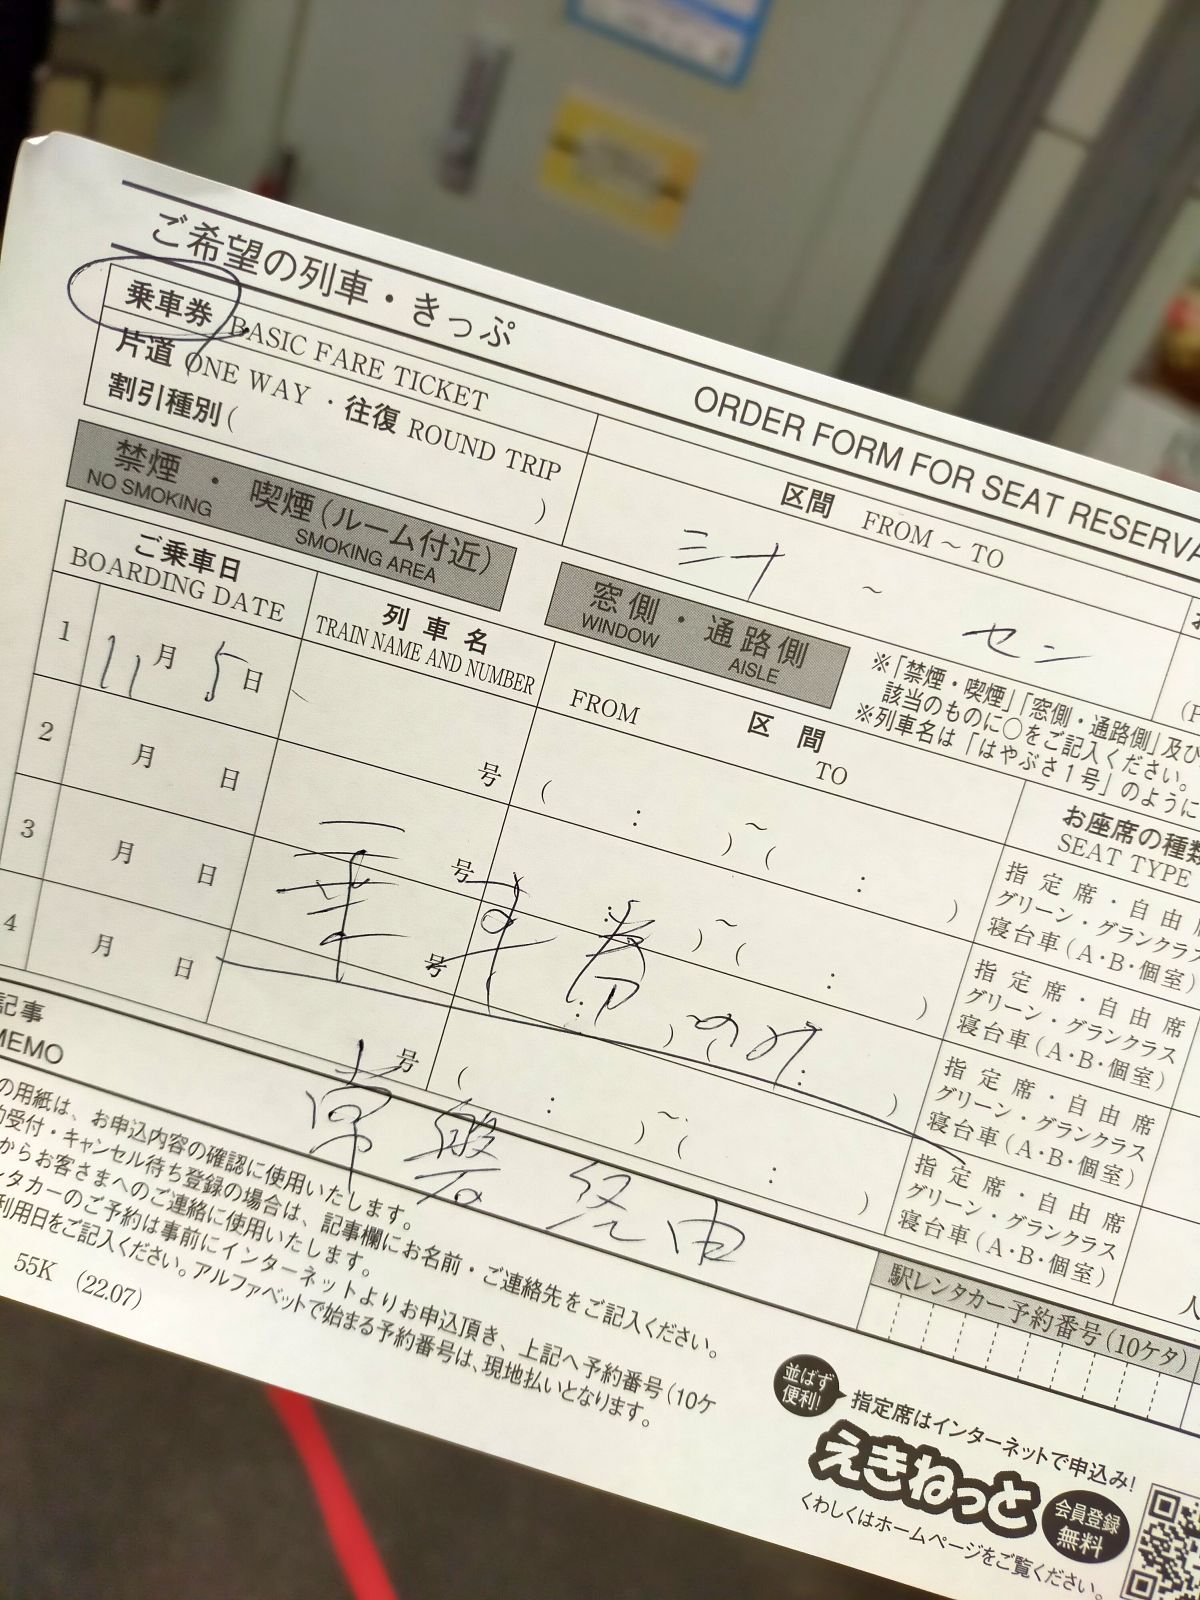 ご希望の列車・きっぷ
ORDER FORM FOR SEAT RESERVA
乗車券 BASIC FARE TICKET
片道 ONE WAY ・往復 ROUND TRIP
割引種別( )
区間 FROM ~ TO
ミナ ~ セン
禁煙・喫煙(ルーム付近)
NO SMOKING SMOKING AREA
窓側・通路側
WINDOW AISLE
※「禁煙・喫煙」「窓側・通路側」及び
該当のものに○をご記入ください。
※列車名は「はやぶさ1号」のように
ご乗車日
BOARDING DATE
列車名
TRAIN NAME AND NUMBER
FROM 区間 TO
お座席の種類
SEAT TYPE
1 11月 5日 号 ( : )~( : )
指定席・自由席
グリーン・グランクラス
寝台車(A・B・個室)
2 月 日 号 : )~( : )
指定席・自由席
グリーン・グランクラス
寝台車(A・B・個室)
3 月 日 号 : )~( : )
指定席・自由席
グリーン・グランクラス
寝台車(A・B・個室)
乗車券のみ
4 月 日 号 ( : )~( : )
指定席・自由席
グリーン・グランクラス
寝台車(A・B・個室)
記事
MEMO
常磐経由
人
駅レンタカー予約番号(10ケタ)
の用紙は、お申込内容の確認に使用いたします。
約受付・キャンセル待ち登録の場合は、記事欄にお名前・ご連絡先をご記入ください。
からお客さまへのご連絡に使用いたします。
ンタカーのご予約は事前にインターネットよりお申込頂き、上記へ予約番号(10ケ
利用日をご記入ください。アルファベットで始まる予約番号は、現地払いとなります。
55K (22.07)
並ばず便利!
指定席はインターネットで申込み!
えきねっと
会員登録無料
くわしくはホームページをご覧ください。